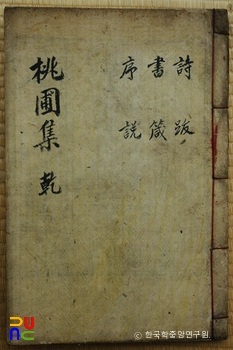 桃圃集 乾
詩 跋
書 箴
序 說
© 한국학중앙연구원